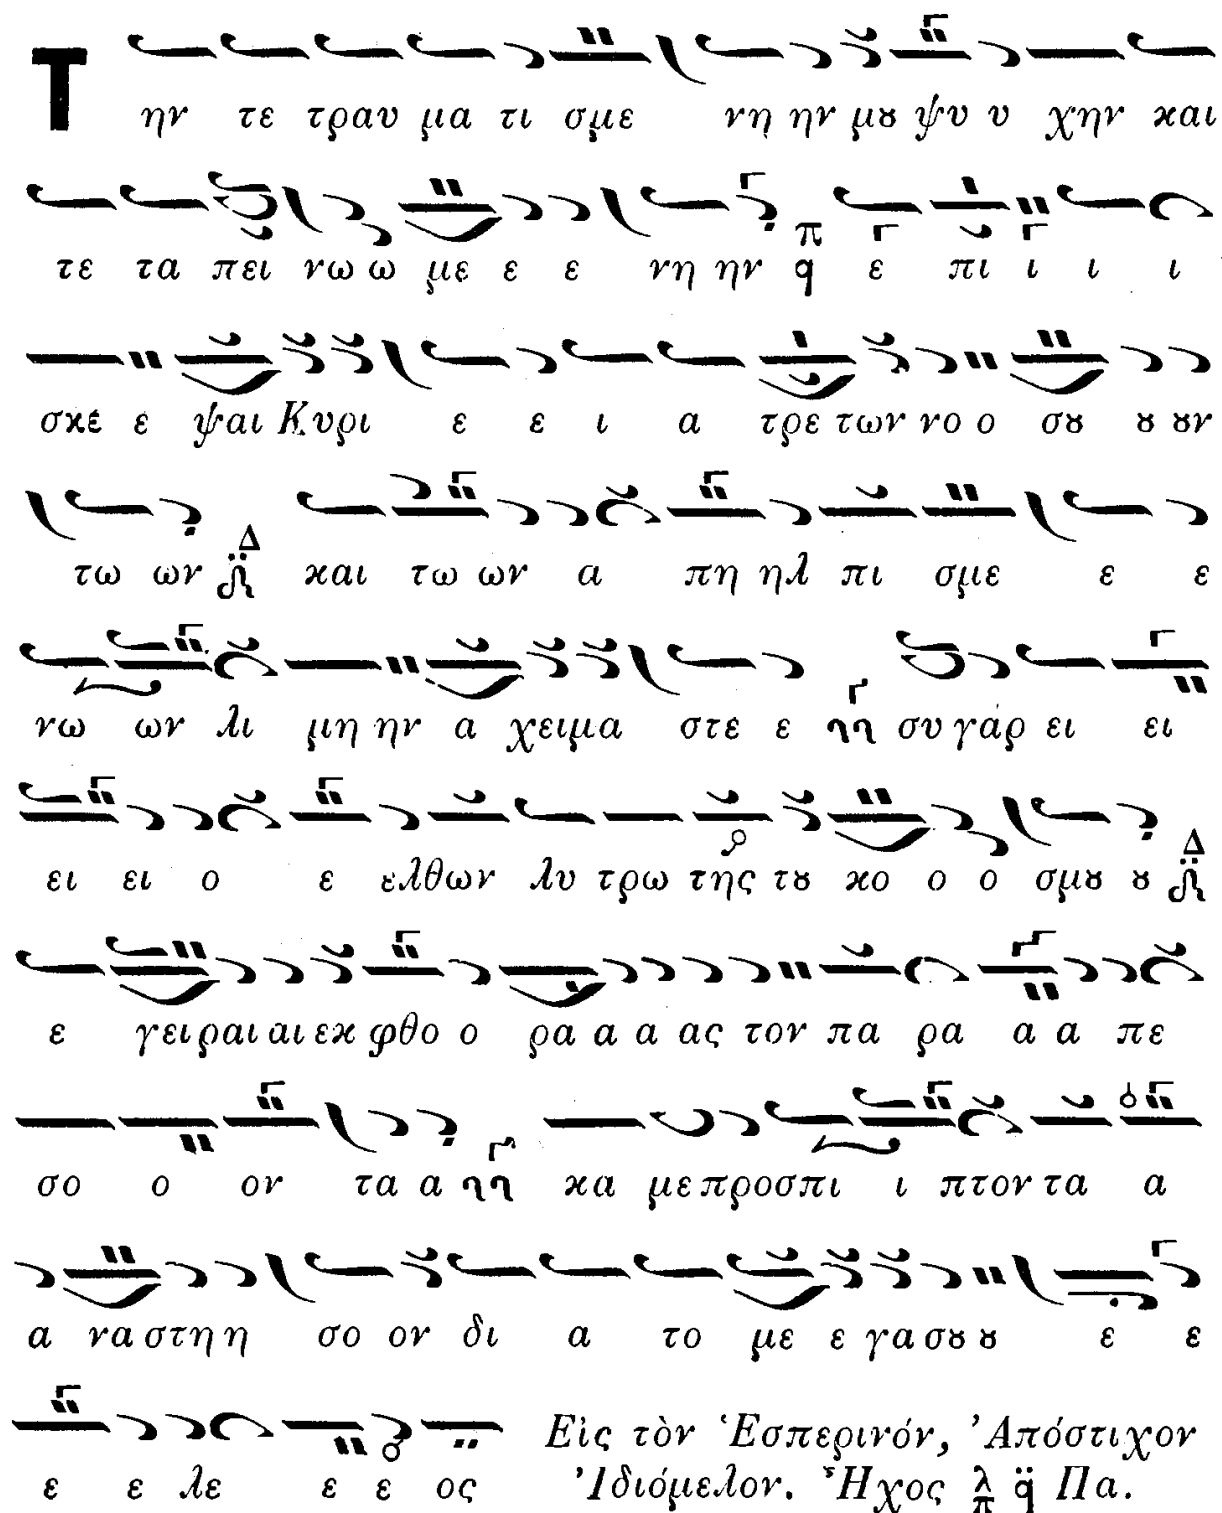 Τ ην τε τραυ μα τι σμε νη ην μȣ ψυ υ χην και
τε τα πει νω ω με ε ε νη ην π q ε πι ι ι ι
σκε ε ψαι Κυρι ε ε ι α τρε των νο ο σȣ ȣ ȣν
τω ων Δ και τω ων α πη ηλ πι σμε ε ε
νω ων λι μη ην α χειμα στε ε Γ συ γάρ ει ει
ει ει ο ε ελθων λυ τρω της τȣ κο ο ο σμȣ ȣ Δ
ε γει ραι αι εκ φθο ο ρα α α ας τον πα ρα α α πε
σο ο ον τα α Γ κα με προσπι ι πτον τα α
α να στη η σο ον δι α το με ε γα σȣ ȣ ε ε
ε ε λε ε ε ος Εἰς τὸν Ἑσπερινόν, Ἀπόστιχον
Ἰδιόμελον. Ἦχος λ π q̈ Πα.